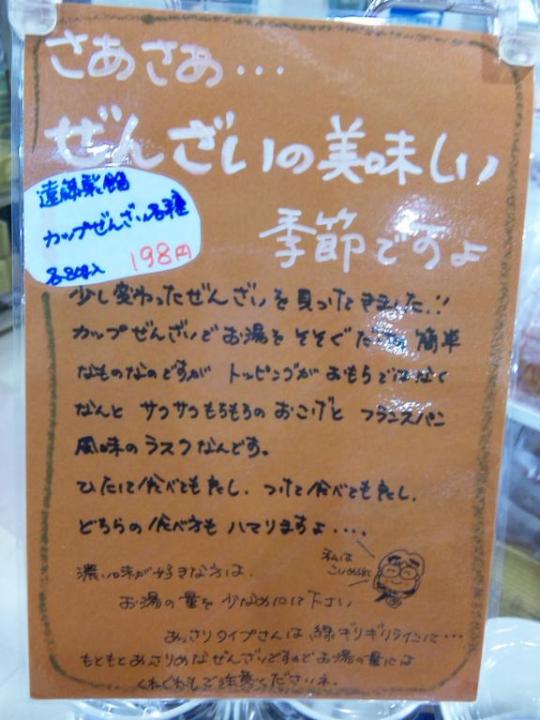 さあさあ・・・
ぜんざいの美味しい
季節ですよ
遠藤製餡
カップぜんざい各種
198円
少し変わったぜんざいを見つけてきました!!
カップぜんざいでお湯をそそぐだけの簡単
なものなのですが トッピングがおもちではなく
なんと サクサクもちもちのおこげと フランスパン
風味のラスクなんです。
ひたして食べても良し、つけて食べても良し、
どちらの食べ方も ハマりますよ・・・・
私は
こいめ
濃い味が好きな方は、
お湯の量を 少なめにして下さい
あっさりタイプさんは、線ギリギリラインに・・・
もともとあっさりめなぜんざいですのでお湯の量には
くれぐれもご注意くださいネ。